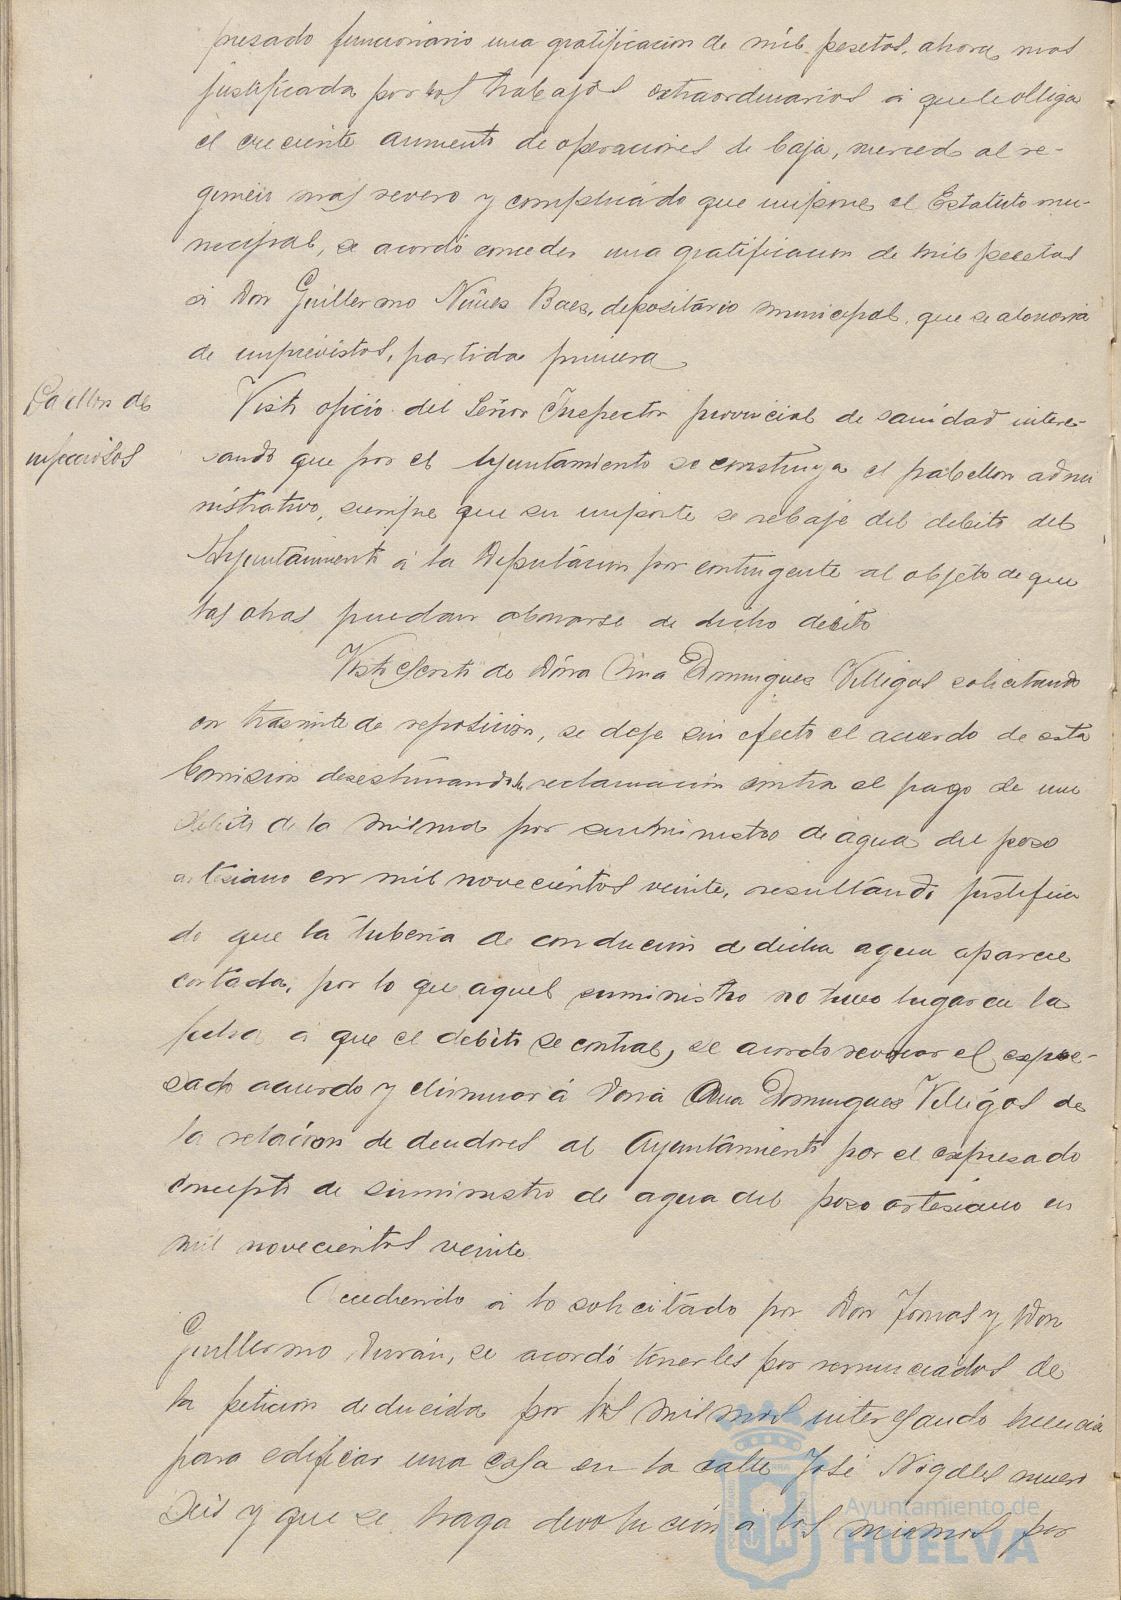 presado funcionario una gratificacion de mil pesetas, ahora mas
justificada por los trabajos extraordinarios a que le obliga
el creciente aumento de operaciones de Caja, merced al re-
gimen mas severo y complicado que impone el Estatuto mu-
nicipal, se acordó conceder una gratificacion de mil pesetas
a Don Guillermo Nuñez Baez, depositario municipal, que se abonaria
de imprevistos, partida primera
Pabellon de
infecciosos
Visto oficio del Señor Inspector provincial de sanidad intere-
sando que por el Ayuntamiento se construya el pabellon admi
nistrativo, siempre que su importe se rebaje del debito del
Ayuntamiento a la Diputacion por contingente al objeto de que
las obras puedan abonarse de dicho debito
Visto escrito de Doña Ana Dominguez Villegas solicitando
en tramite de reposicion, se deje sin efecto el acuerdo de esta
Comision desestimando la reclamacion contra el pago de un
debito de la misma por suministro de agua del pozo
artesiano en mil novecientos veinte, resultando justifica
do que la tuberia de conducion d dicha agua aparece
cortada, por lo que aquel suministro no tuvo lugar en la
fecha a que el debito se contrae, se acordo revocar el expre-
sado acuerdo y eliminar á Doña Ana Dominguez Villegas de
la relacion de deudores al Ayuntamiento por el expresado
concepto de suministro de agua del pozo artesiano en
mil novecientos veinte.
Accediendo a lo solicitado por Don Tomas y Don
Guillermo Duran, se acordó tenerles por renunciados de
la peticion deducida por los mismos interesando licencia
para edificar una casa en la calle José Nogales numero
Seis y que se haga devolucion a los mismos por
Ayuntamiento de
HUELVA